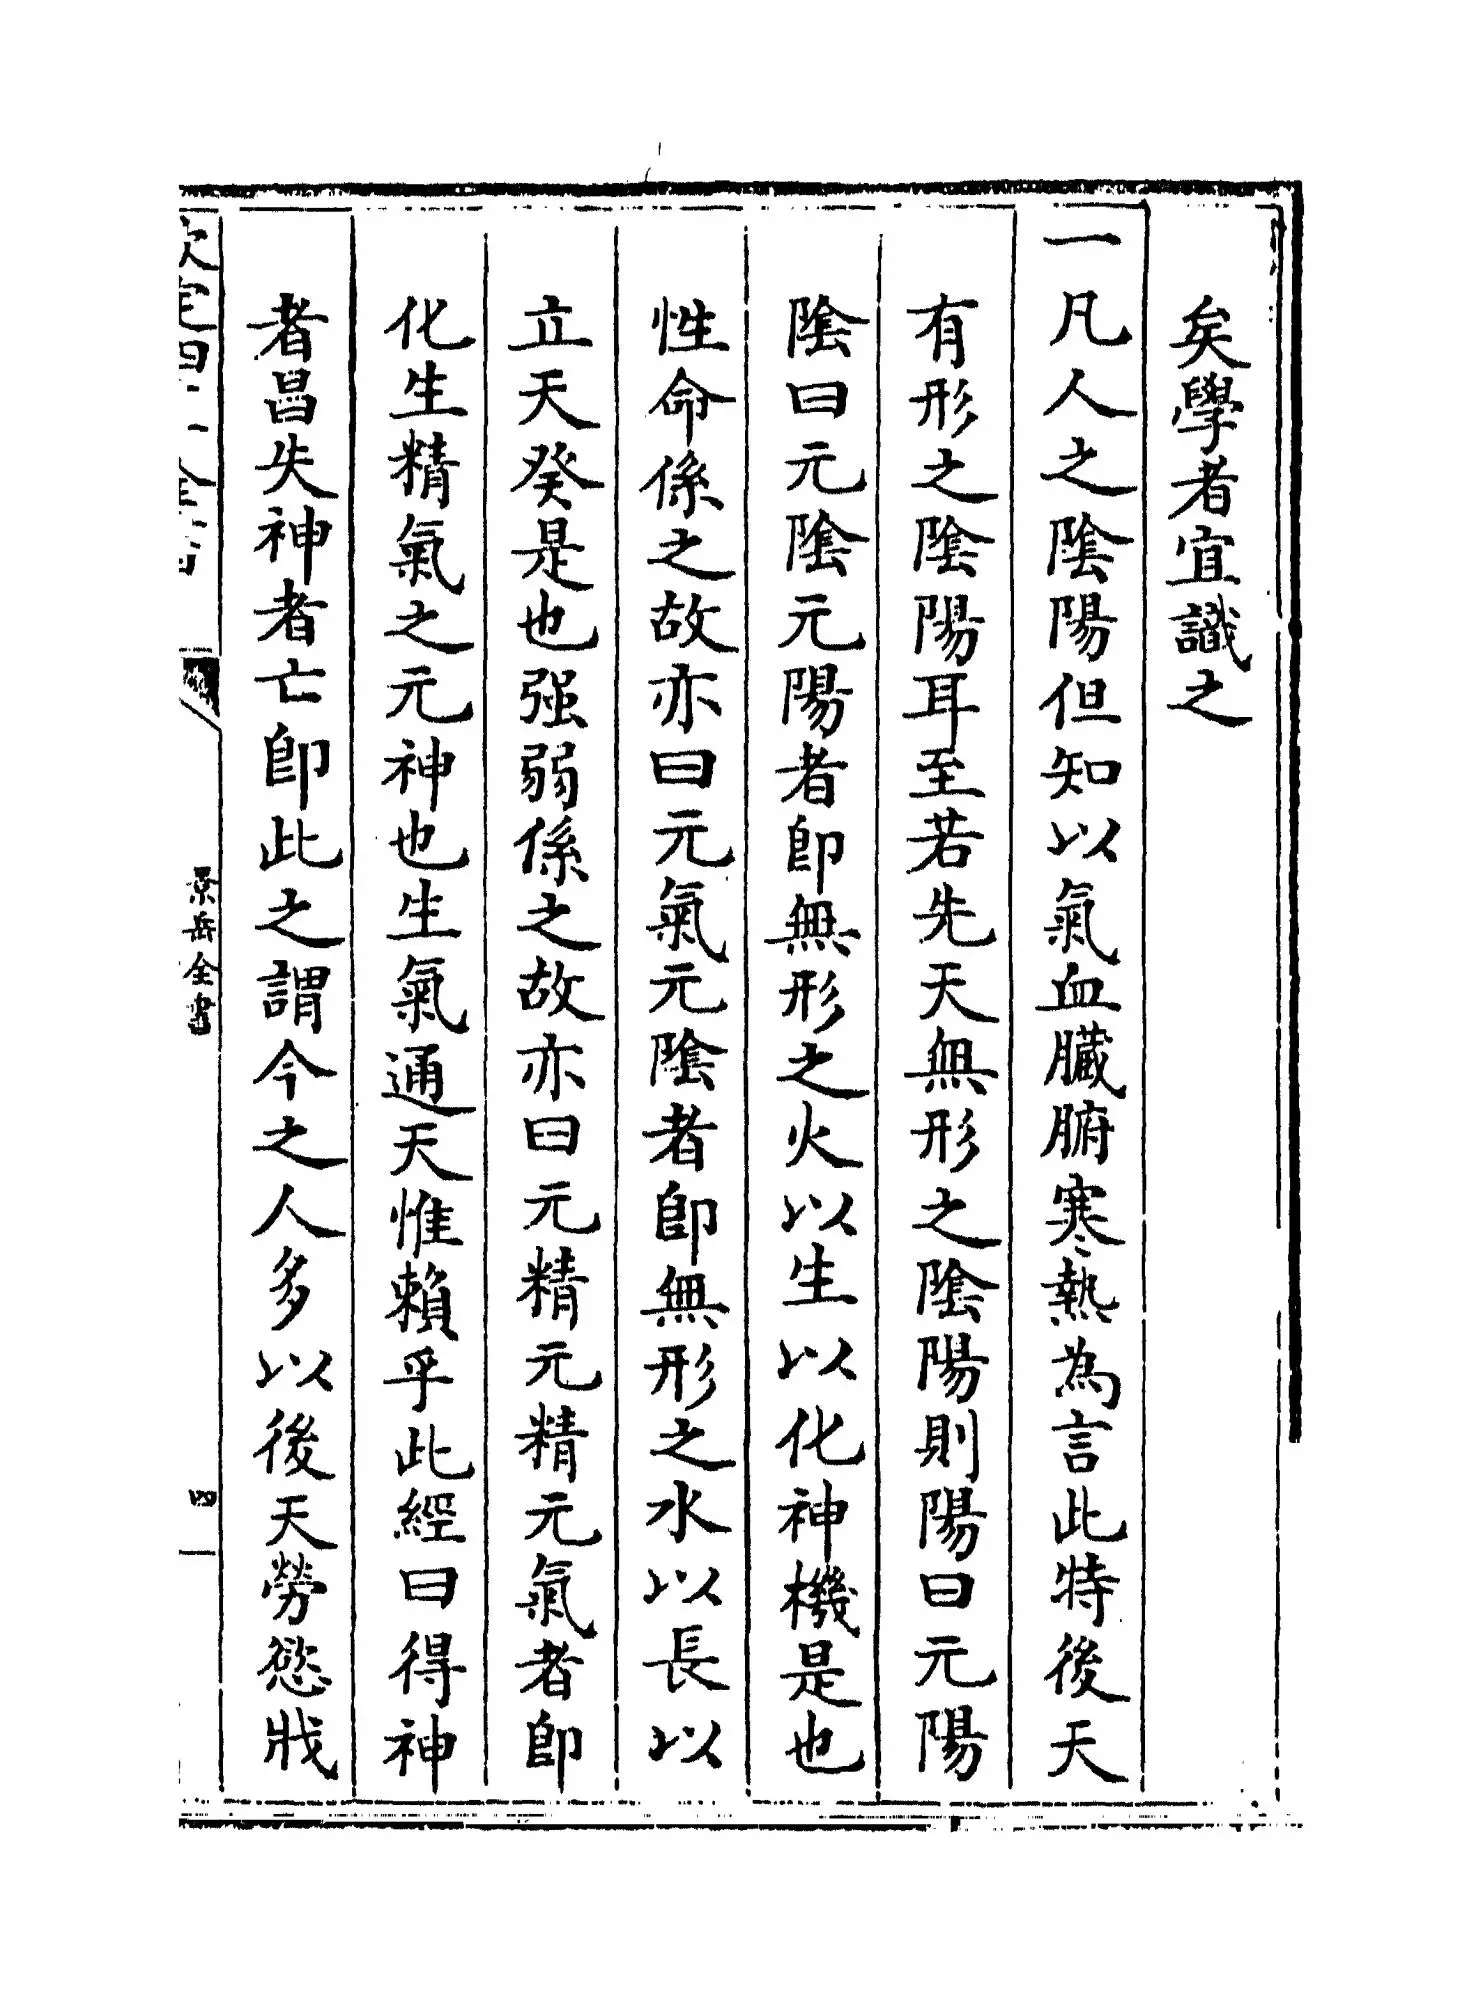 矣學者宜識之
一凡人之陰陽但知以氣血臟腑寒熱為言此特後天
有形之陰陽耳至若先天無形之陰陽則陽曰元陽
陰曰元陰元陽者即無形之火以生以化神機是也
性命係之故亦曰元氣元陰者即無形之水以長以
立天癸是也强弱係之故亦曰元精元精元氣者即
化生精氣之元神也生氣通天惟賴乎此經曰得神
者昌失神者亡即此之謂今之人多以後天勞慾戕
欽定四庫全書
景岳全書
四